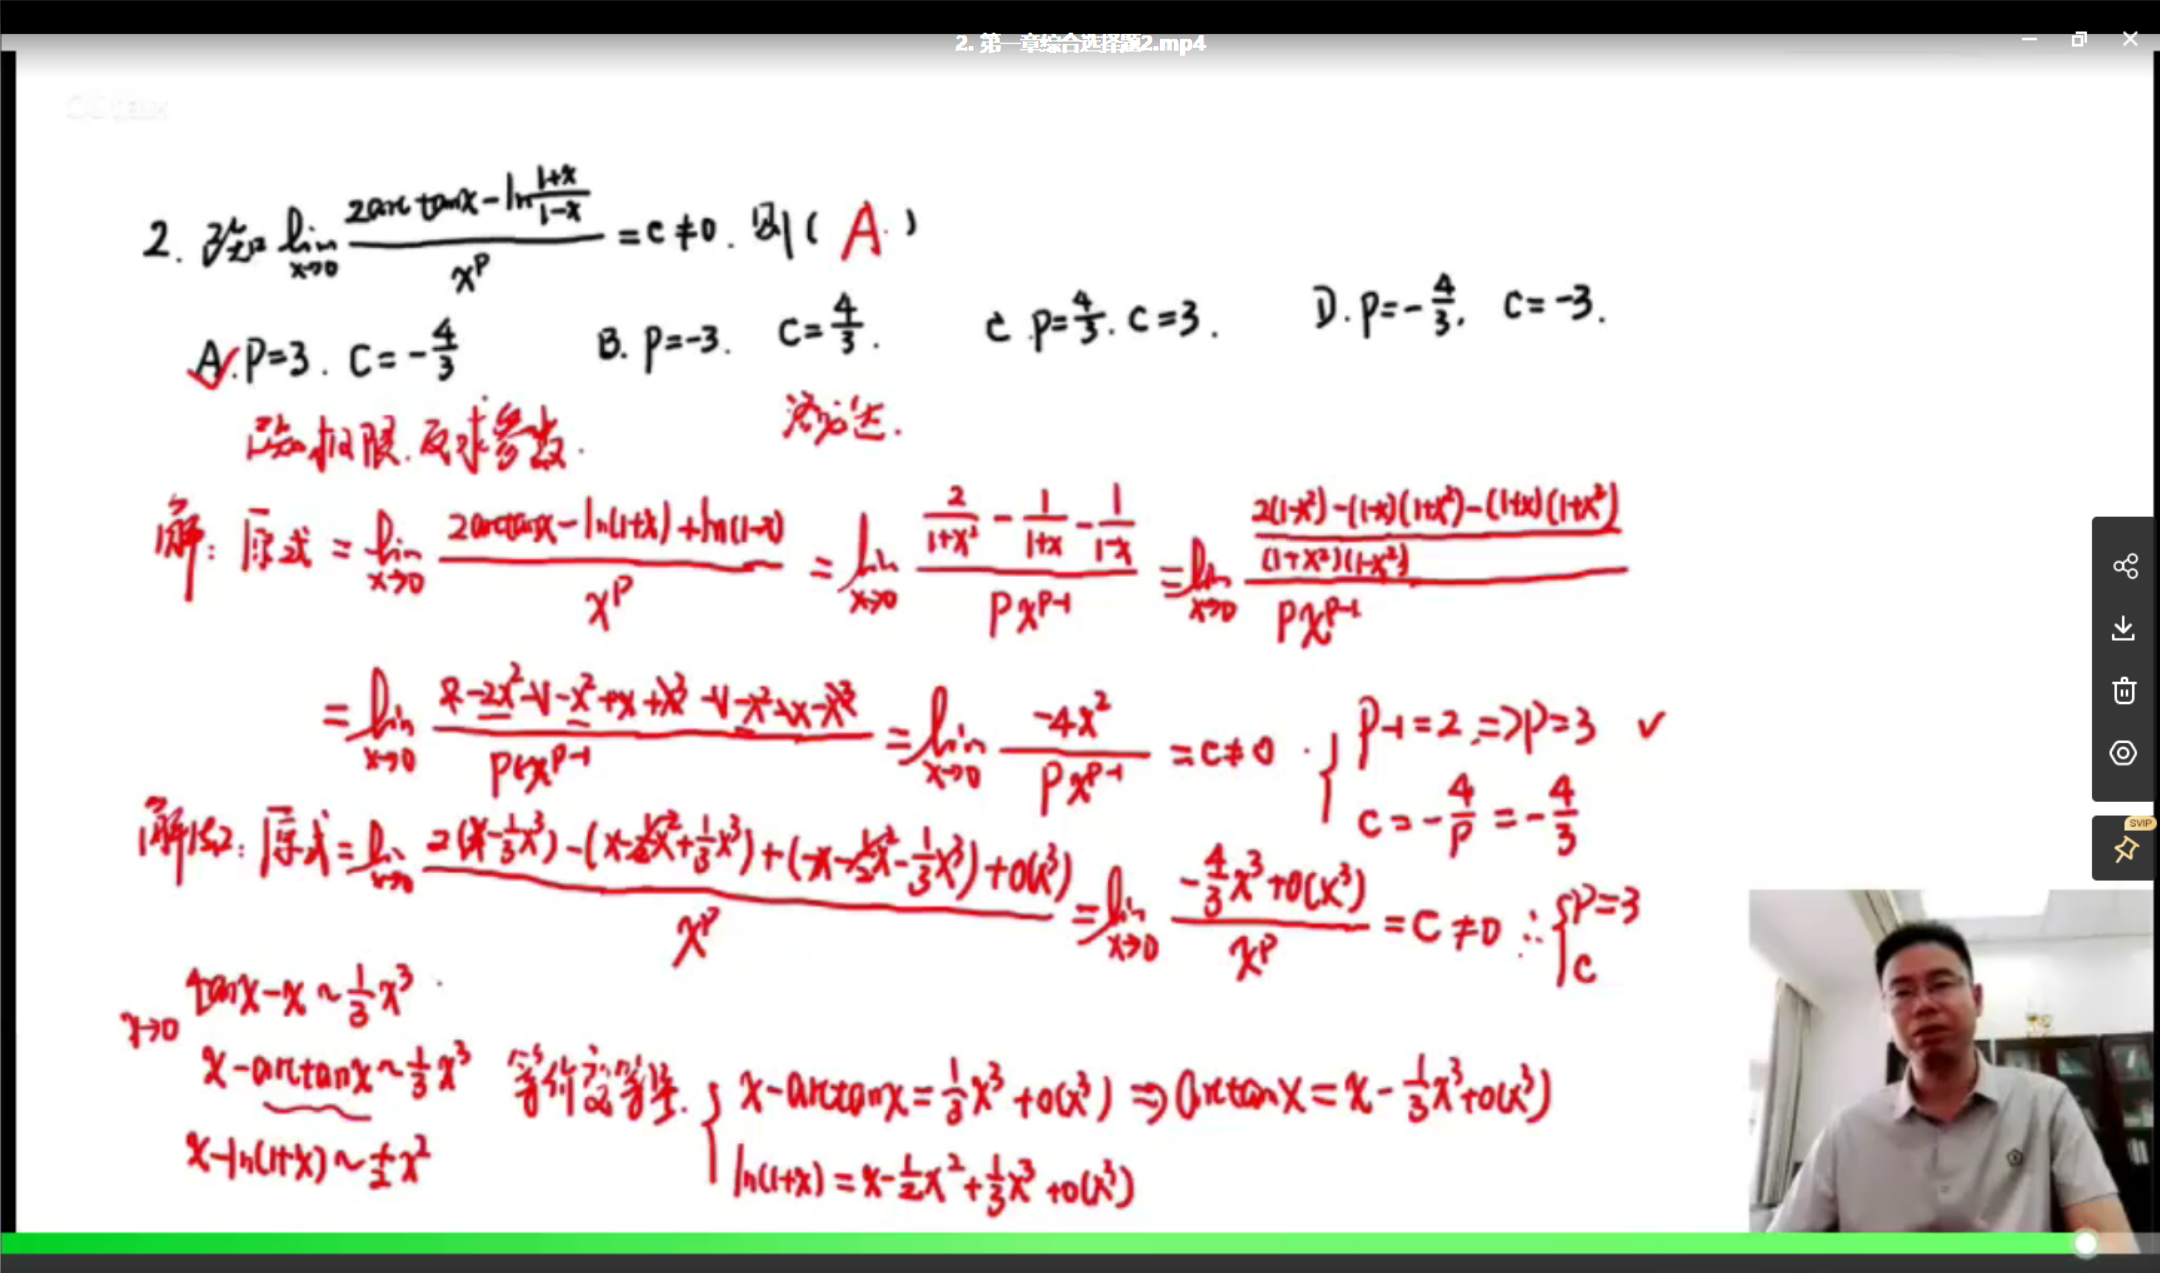 2. 第一章综合选择题2.mp4
CCtalk
2. 已知 lim x→0 (2arctanx - ln (1+x)/(1-x)) / x^p = c ≠ 0. 则 ( A. )
A. P=3. C = -4/3 B. P=-3. C = 4/3. C. P=4/3. C=3. D. P=-4/3. C=-3.
已知极限. 反求参数. 洛必达.
解: 原式 = lim x→0 (2arctanx - ln(1+x) + ln(1-x)) / x^p = lim x→0 (2/(1+x²) - 1/(1+x) - 1/(1-x)) / (P x^(p-1)) = lim x→0 ((2(1-x²) - (1-x)(1+x²) - (1+x)(1+x²)) / ((1+x²)(1-x²))) / (P x^(p-1))
= lim x→0 (2 - 2x² - 1 - x² + x + x³ - 1 - x² - x - x³) / (P x^(p-1)) = lim x→0 -4x² / (P x^(p-1)) = c ≠ 0 ∴ { P-1=2 ⇒ P=3 ✓
C = -4/P = -4/3
解法2: 原式 = lim x→0 (2(x - 1/3 x³) - (x - 1/2 x² + 1/3 x³) + (-x - 1/2 x² - 1/3 x³) + o(x³)) / x^p = lim x→0 (-4/3 x³ + o(x³)) / x^p = C ≠ 0 ∴ { P=3
C
x→0 tanx - x ~ 1/3 x³.
x - arctanx ~ 1/3 x³ 等价变等号. { x - arctanx = 1/3 x³ + o(x³) ⇒ arctanx = x - 1/3 x³ + o(x³)
x - ln(1+x) ~ 1/2 x² ln(1+x) = x - 1/2 x² + 1/3 x³ + o(x³)
SVIP